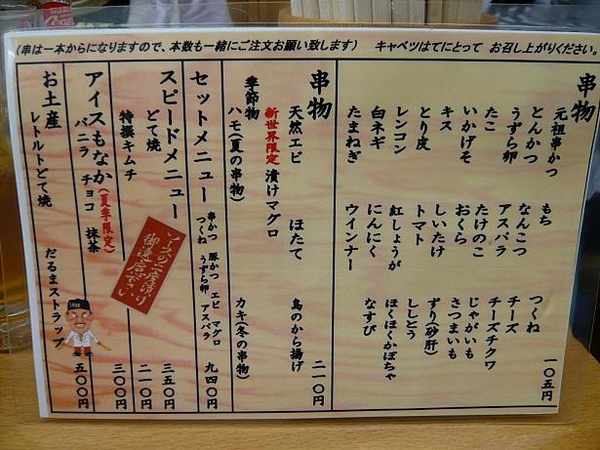 (串は一本からになりますので、本数も一緒にご注文お願い致します) キャベツはてにとって お召し上がりください。
串物
元祖串かつ もち つくね 一〇五円
とんかつ なんこつ チーズ
うずら卵 アスパラ チーズチクワ
たこ たけのこ じゃがいも
いかげそ おくら さつまいも
キス しいたけ ずり(砂肝)
とり皮 トマト ししとう
レンコン 紅しょうが ほくほくかぼちゃ
白ネギ にんにく なすび
たまねぎ ウインナー
串物
天然エビ ほたて 鳥のから揚げ 二一〇円
新世界限定 漬けマグロ
季節物
ハモ(夏の串物) カキ(冬の串物)
セットメニュー 串かつ 豚かつ エビ マグロ 九四〇円
つくね うずら卵 アスパラ
スピードメニュー
どて焼 三五〇円
特撰キムチ 二一〇円
アイスもなか(夏季限定)
バニラ チョコ 抹茶 三〇〇円
お土産
レトルトどて焼 だるまストラップ 五〇〇円
ソースの二度漬け
御遠慮下さい